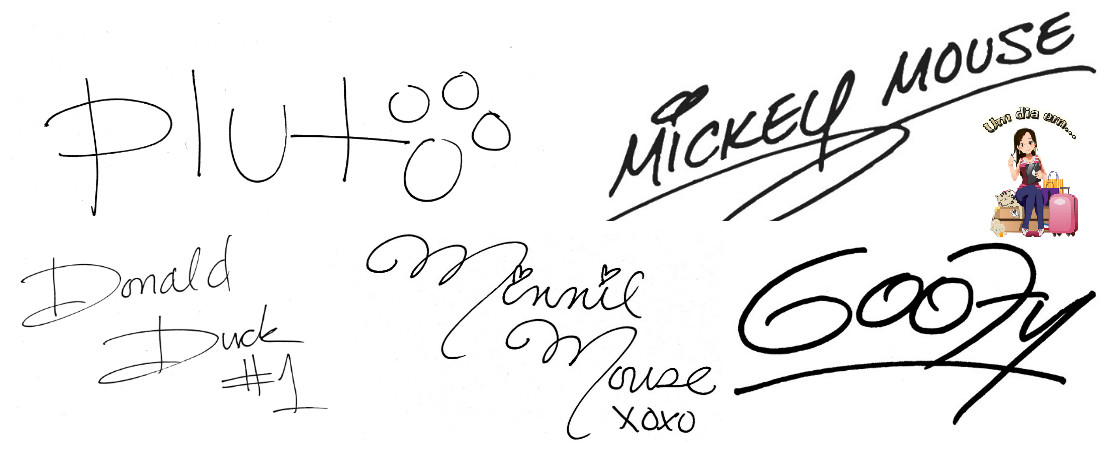 Pluto
MICKEY MOUSE
Um dia em...
Donald
Duck
#1
Minnie
Mouse
xoxo
Goofy